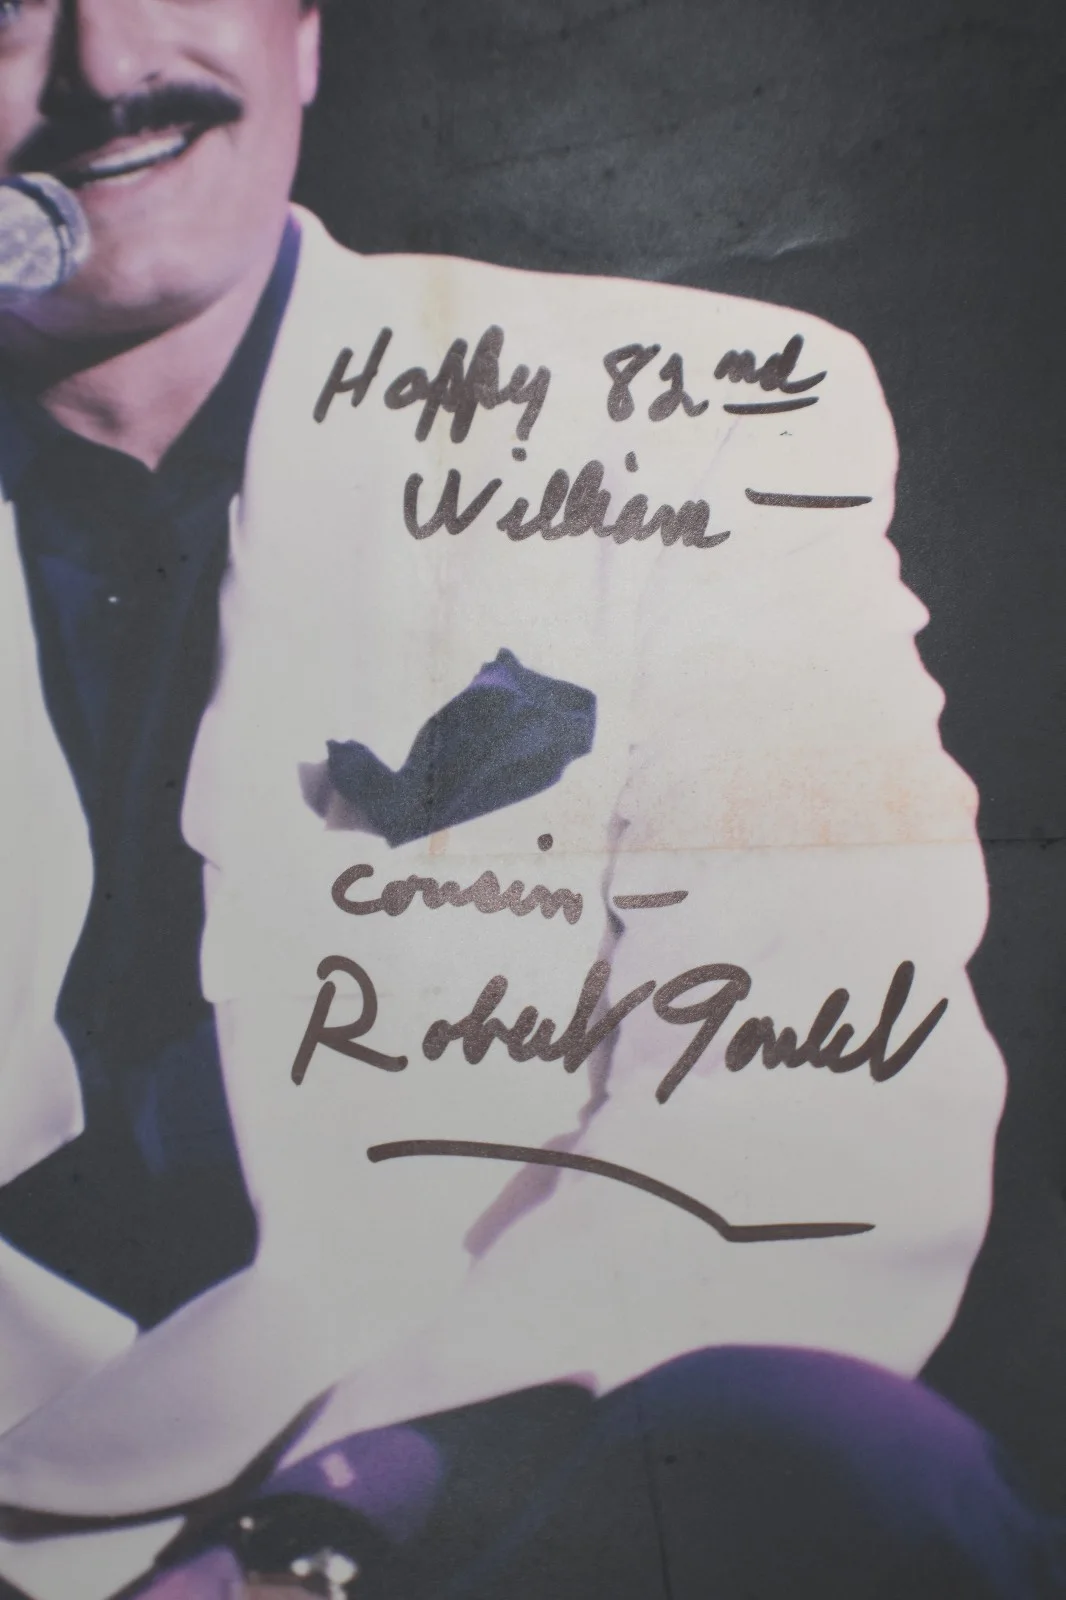 Happy 82nd
William —
cousin —
Robert Goulet